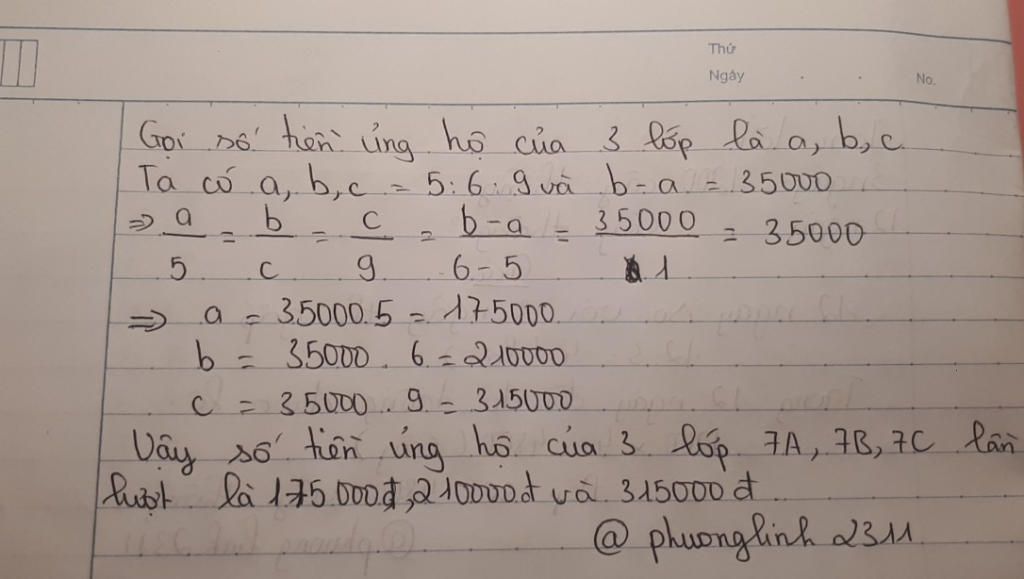 Thứ
Ngày . . No.
Gọi số tiền ủng hộ của 3 lớp là a, b, c
Ta có a, b, c = 5 : 6 : 9 và b - a = 35000
=> a/5 = b/c = c/9 = b-a/6-5 = 35000/1 = 35000
=> a = 35000.5 = 175000
b = 35000 . 6 = 210000
c = 35000 . 9 = 315000
Vậy số tiền ủng hộ của 3 lớp 7A, 7B, 7C lần
lượt là 175.000đ, 210000đ và 315000đ
@ phuonglinh 2311